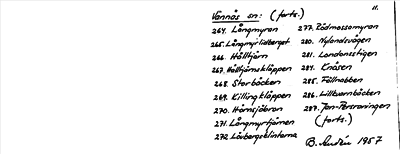 11.
Vännäs sn: (forts.)
264. Långmyran
265. Långmyrlidberget
266. Hålltjärn
267. Hålltjärnsklöppen
268. Storbäcken
269. Killingkläppen
270. Hörnsjöbran
271. Långmyrtjärnen
272. Lövbergsklintarna
277. Rödmossamyran
280. Nylandsvägen
281. Londonstigen
284. Knösen
285. Fällnabben
286. Lillbarnbäcken
287. Jan-Persraningen
(forts.)
1957